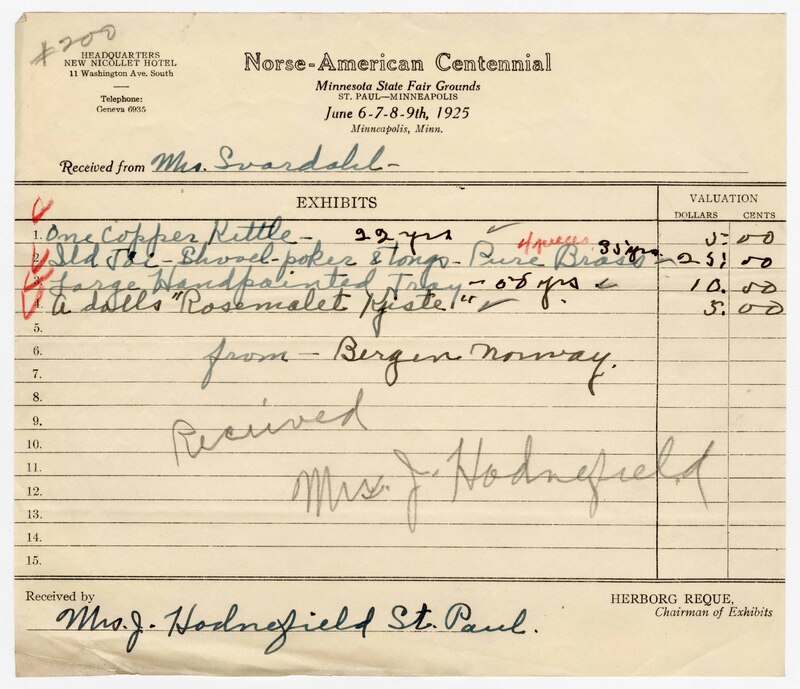 #200
HEADQUARTERS
NEW NICOLLET HOTEL
11 Washington Ave. South
Telephone:
Geneva 6935
Norse-American Centennial
Minnesota State Fair Grounds
ST. PAUL—MINNEAPOLIS
June 6-7-8-9th, 1925
Minneapolis, Minn.
Received from Mrs. Svardahl-
EXHIBITS
VALUATION
DOLLARS CENTS
1. One Copper Kettle - 22 yrs 5.00
4 pieces 35 yrs
2. Ild Tøi - Shovel-poker & tongs - Pure Brass - 25.00
3. Large Handpainted Tray - 55 yrs 10.00
4. a dolls "Rosemalet Kiste" 5.00
5.
6. from - Bergen Norway.
7.
8.
9.
Received
10.
11. Mrs. J. Hodnefield
12.
13.
14.
15.
Received by
HERBORG REQUE,
Chairman of Exhibits
Mrs. J. Hodnefield St. Paul.